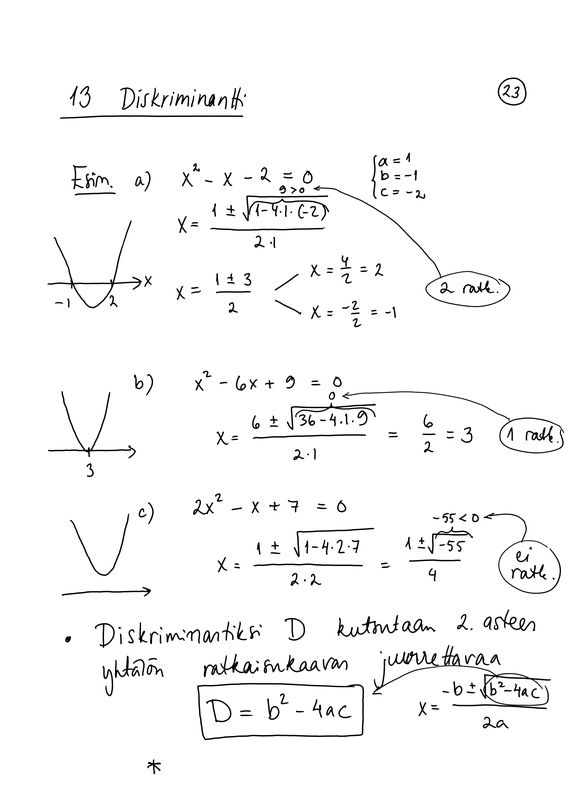 13 Diskriminantti 23
Esim. a) x² - x - 2 = 0 { a = 1
b = -1
c = -2
9 > 0
x = (1 ± √(1-4·1·(-2))) / (2·1)
x = (1 ± 3) / 2
x = 4/2 = 2
x = -2/2 = -1
2 ratk.
-1 2 x
b) x² - 6x + 9 = 0
0
x = (6 ± √(36-4·1·9)) / (2·1) = 6/2 = 3
1 ratk.
3
c) 2x² - x + 7 = 0
-55 < 0
x = (1 ± √(1-4·2·7)) / (2·2) = (1 ± √-55) / 4
ei
ratk.
• Diskriminantiksi D kutsutaan 2. asteen
yhtälön ratkaisukaavan juurrettavaa
D = b² - 4ac
x = (-b ± √(b²-4ac)) / 2a
*